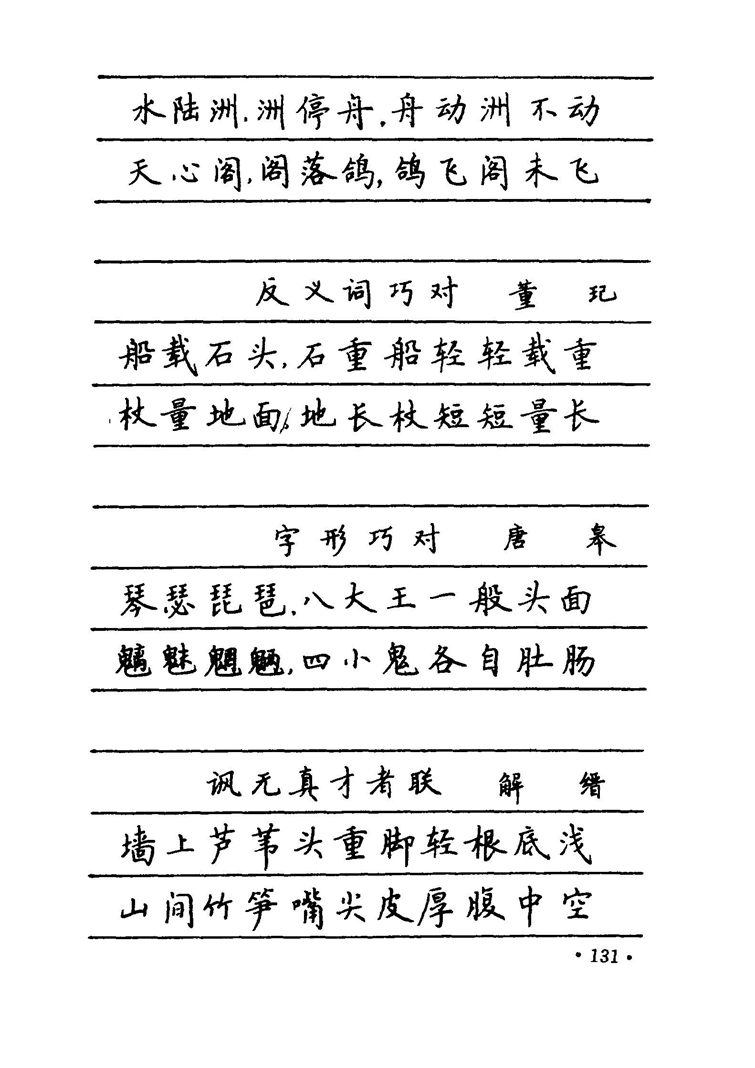 水陆洲,洲停舟,舟动洲不动
天心阁,阁落鸽,鸽飞阁未飞
反义词巧对 董 玘
船载石头,石重船轻轻载重
杖量地面,地长杖短短量长
字形巧对 唐 皋
琴瑟琵琶,八大王一般头面
魑魅魍魉,四小鬼各自肚肠
讽无真才者联 解 缙
墙上芦苇头重脚轻根底浅
山间竹笋嘴尖皮厚腹中空
·131·